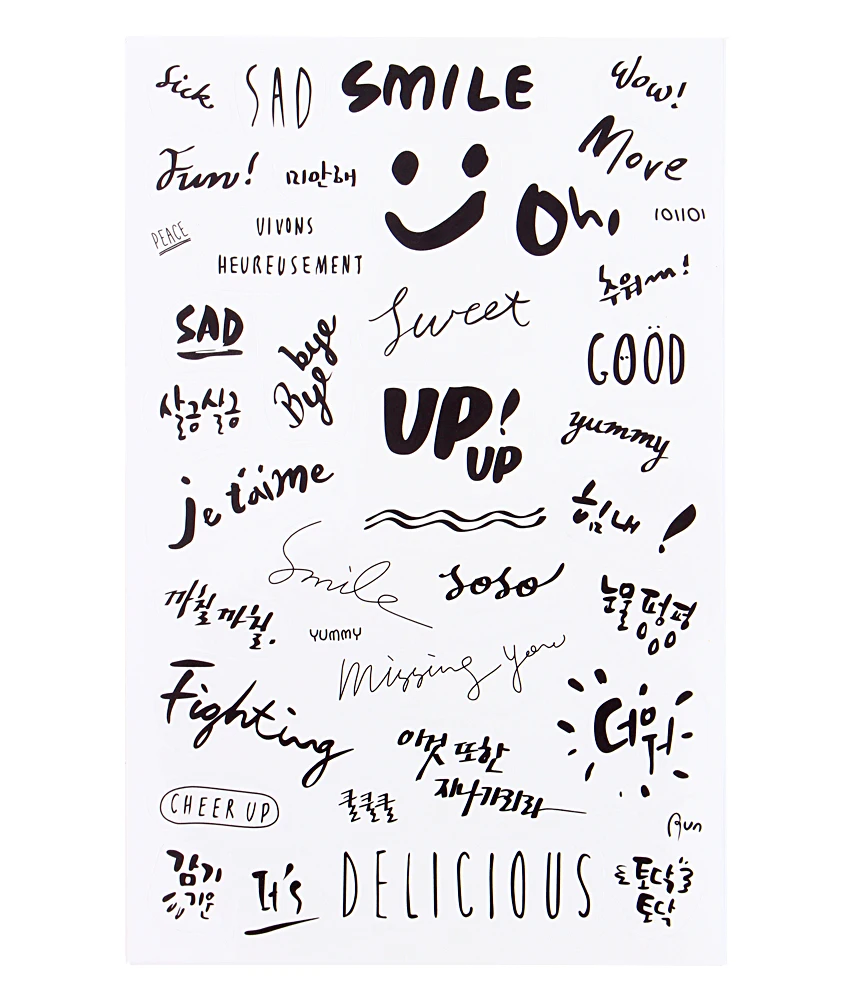 Sick
SAD
SMILE
Wow!
Move
Fun!
미안해
Oh,
101101
PEACE
VIVONS
HEUREUSEMENT
추워!
Sweet
SAD
bye
Bye
GOÖD
살금살금
UP!
UP
yummy
je t'aime
힘내!
Smile
soso
까칠
까칠.
눈물 펑펑
YUMMY
Missing you
Fighting
더워
이것 또한
지나가리라
CHEER UP
쿨쿨쿨
Run
감기
기운
It's
DELICIOUS
토닥
토닥